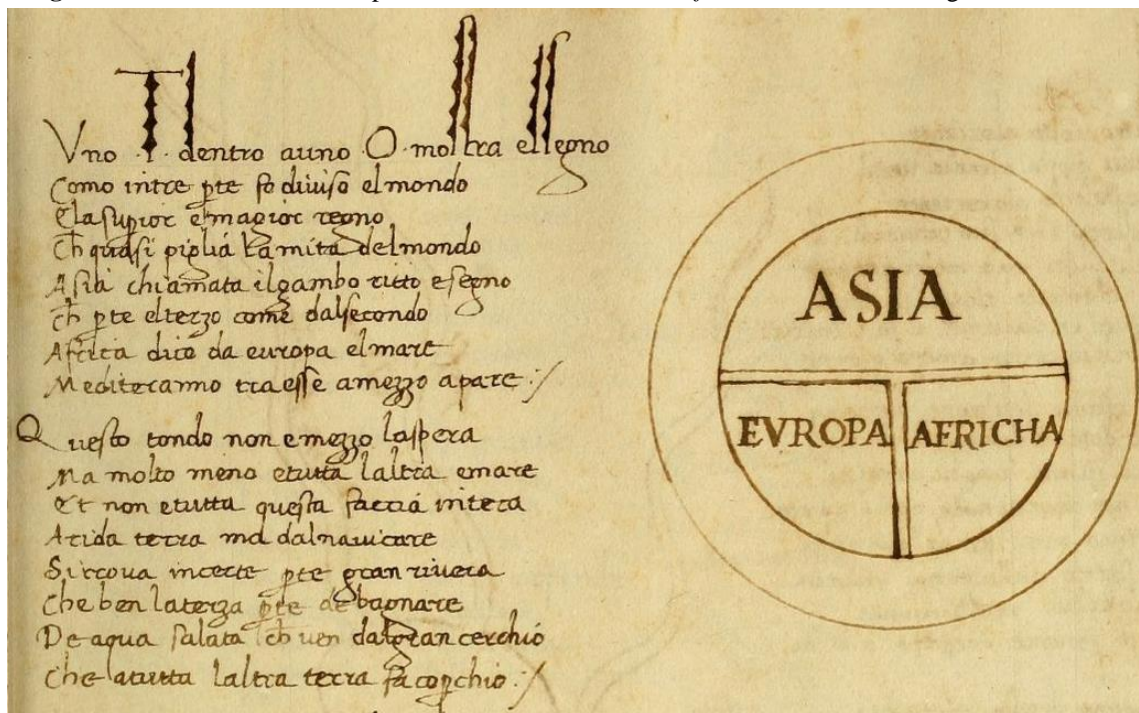 Vno .T. dentro auno .O. mostra elsegno
Como intre pte fo diuiso elmondo
Elasupior emagior regno
Ch quasi piglia lamita delmondo
Asia chiamata ilgambo ritto esegno
Ch pte elterzo come dalsecondo
Africa dico da europa elmare
Mediteranno tra esse amezzo apare :/
Questo tondo non emezzo laspera
Ma molto meno etutta laltra emare
Et non etutta questa faccia intera
Arida terra ma dalnauicare
Sitroua incerte pte gran riuera
Che ben laterza pte de bagnare
De aqua salata ch uen dalgran cerchio
Che atutta laltra terra fa copchio :/
ASIA
EVROPA AFRICHA